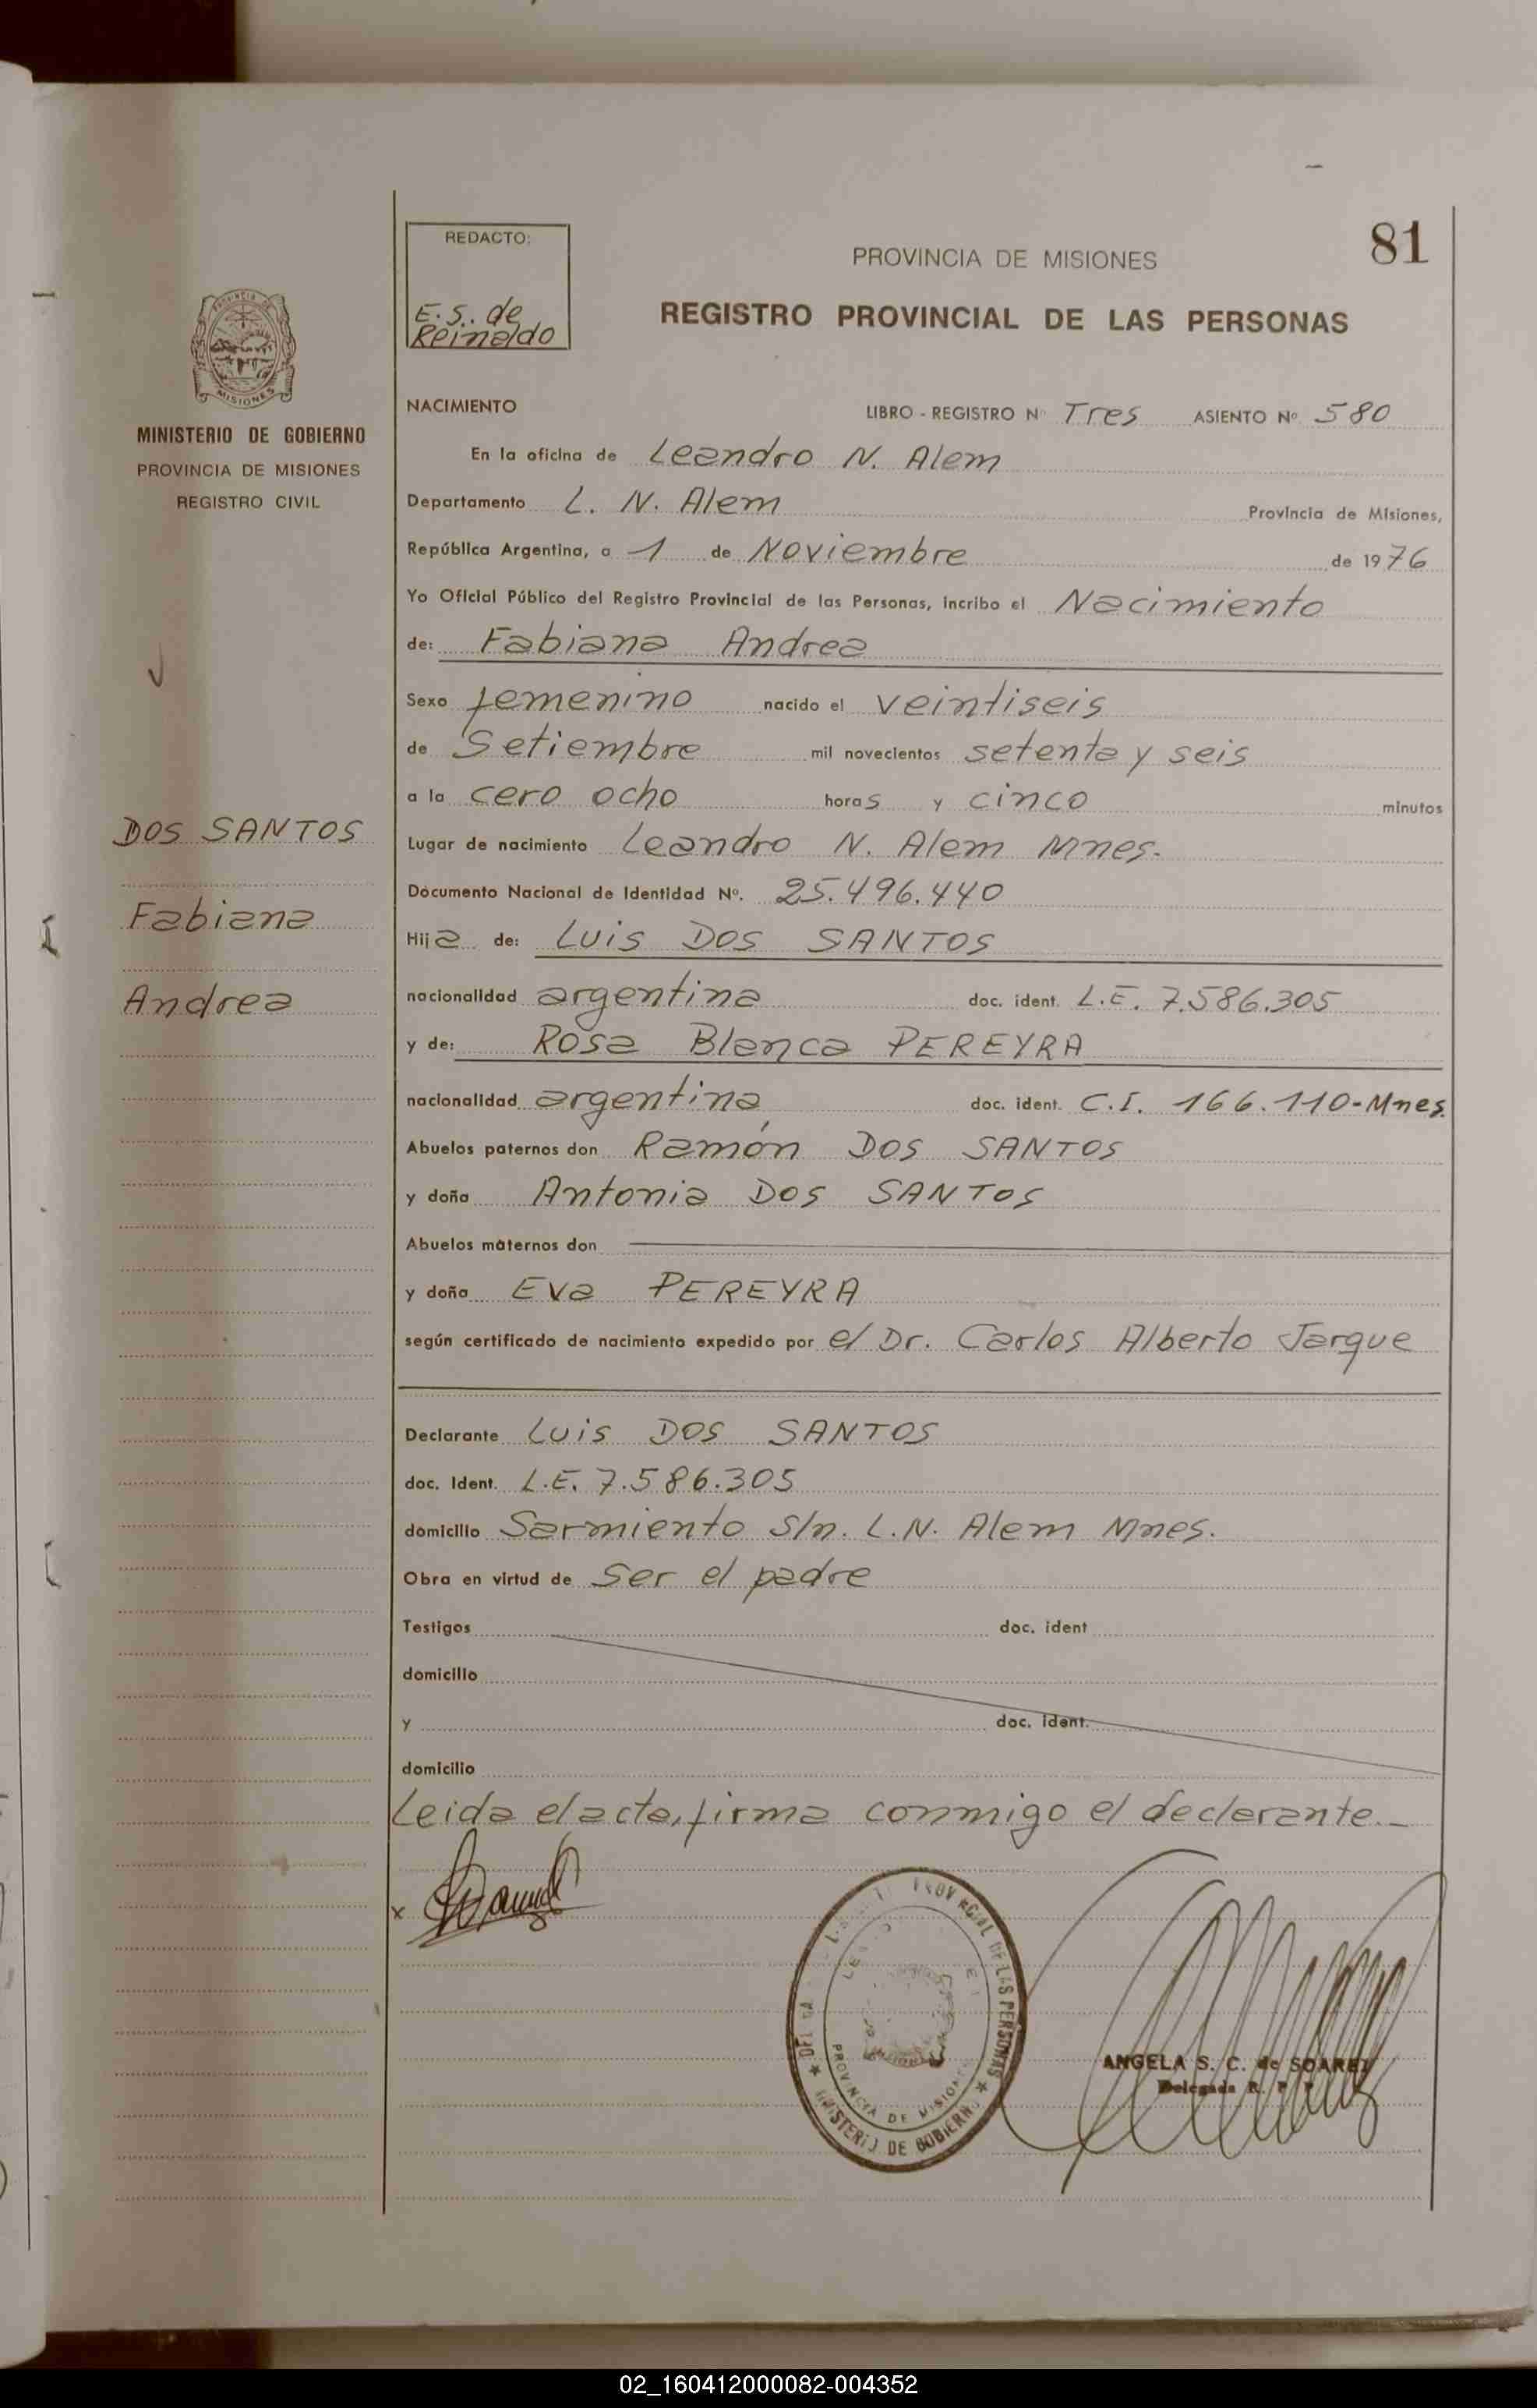 81
REDACTO:
E. S. de
Reinaldo
PROVINCIA DE MISIONES
REGISTRO PROVINCIAL DE LAS PERSONAS
MISIONES
MINISTERIO DE GOBIERNO
PROVINCIA DE MISIONES
REGISTRO CIVIL
DOS SANTOS
Fabiana
Andrea
NACIMIENTO LIBRO - REGISTRO Nº Tres ASIENTO Nº 580
En la oficina de Leandro N. Alem
Departamento L. N. Alem Provincia de Misiones,
República Argentina, a 1 de Noviembre de 1976
Yo Oficial Público del Registro Provincial de las Personas, incribo el Nacimiento
de: Fabiana Andrea
Sexo femenino nacido el veintiseis
de Setiembre mil novecientos setenta y seis
a la cero ocho horas y cinco minutos
Lugar de nacimiento Leandro N. Alem Mnes.
Documento Nacional de Identidad Nº. 25.496.440
Hija de: Luis DOS SANTOS
nacionalidad argentina doc. ident. L.E. 7.586.305
y de: Rosa Blanca PEREYRA
nacionalidad argentina doc. ident. C.I. 166.110-Mnes.
Abuelos paternos don Ramón DOS SANTOS
y doña Antonia DOS SANTOS
Abuelos maternos don
y doña Eva PEREYRA
según certificado de nacimiento expedido por el Dr. Carlos Alberto Jarque
Declarante Luis DOS SANTOS
doc. Ident. L.E. 7.586.305
domicilio Sarmiento s/n. L.N. Alem Mnes.
Obra en virtud de ser el padre
Testigos doc. ident
domicilio
y doc. ident.
domicilio
Leida el acta, firma conmigo el declarante.-
x
DE LAS PERSONAS
PROVINCIA DE MISIONES
MINISTERIO DE GOBIERNO
ANGELA S. C. de SOAREZ
Delegada R. P. P.
02_160412000082-004352